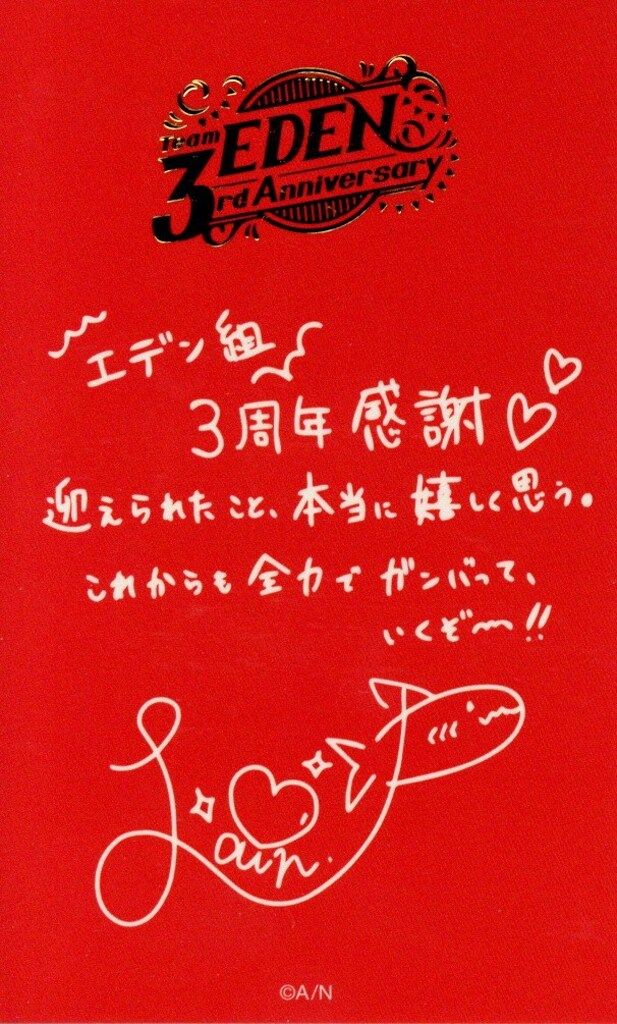 Team
EDEN
3rd Anniversary
エデン組
3周年感謝♡♡
迎えられたこと、本当に嬉しく思う。
これからも全力でガンバって、
いくぞ〜!!
Lain.
©A/N